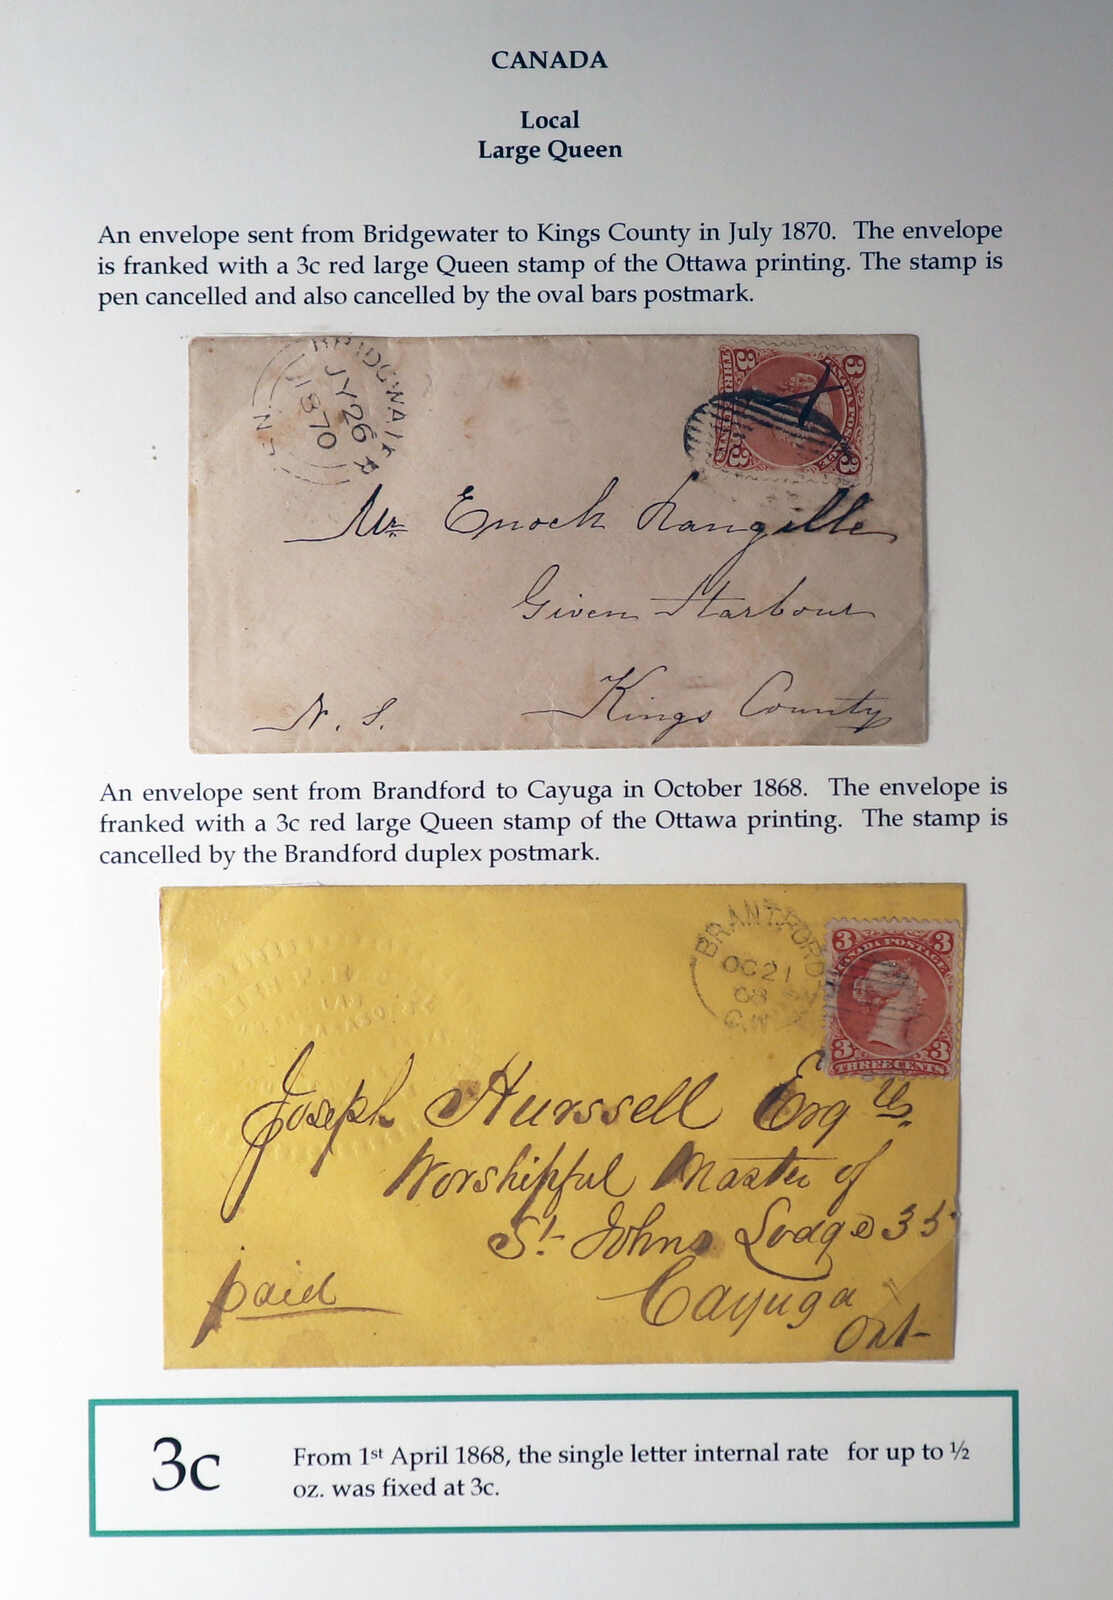 CANADA
Local
Large Queen
An envelope sent from Bridgewater to Kings County in July 1870. The envelope
is franked with a 3c red large Queen stamp of the Ottawa printing. The stamp is
pen cancelled and also cancelled by the oval bars postmark.
BRIDGWATER
JY 26
1870
N.S
3 CANADA POSTAGE 3
3 THREE CENTS 3
X
Mr Enoch Langille
Given Harbour
Kings County
N. S.
An envelope sent from Brandford to Cayuga in October 1868. The envelope is
franked with a 3c red large Queen stamp of the Ottawa printing. The stamp is
cancelled by the Brandford duplex postmark.
BRANTFORD
OC 21
68
C.W
3 CANADA POSTAGE 3
3 THREE CENTS 3
Joseph Hurssell Esq
Worshipful Master of
St Johns Lodge 35
Cayuga
Ont
paid
3c
From 1st April 1868, the single letter internal rate for up to ½
oz. was fixed at 3c.